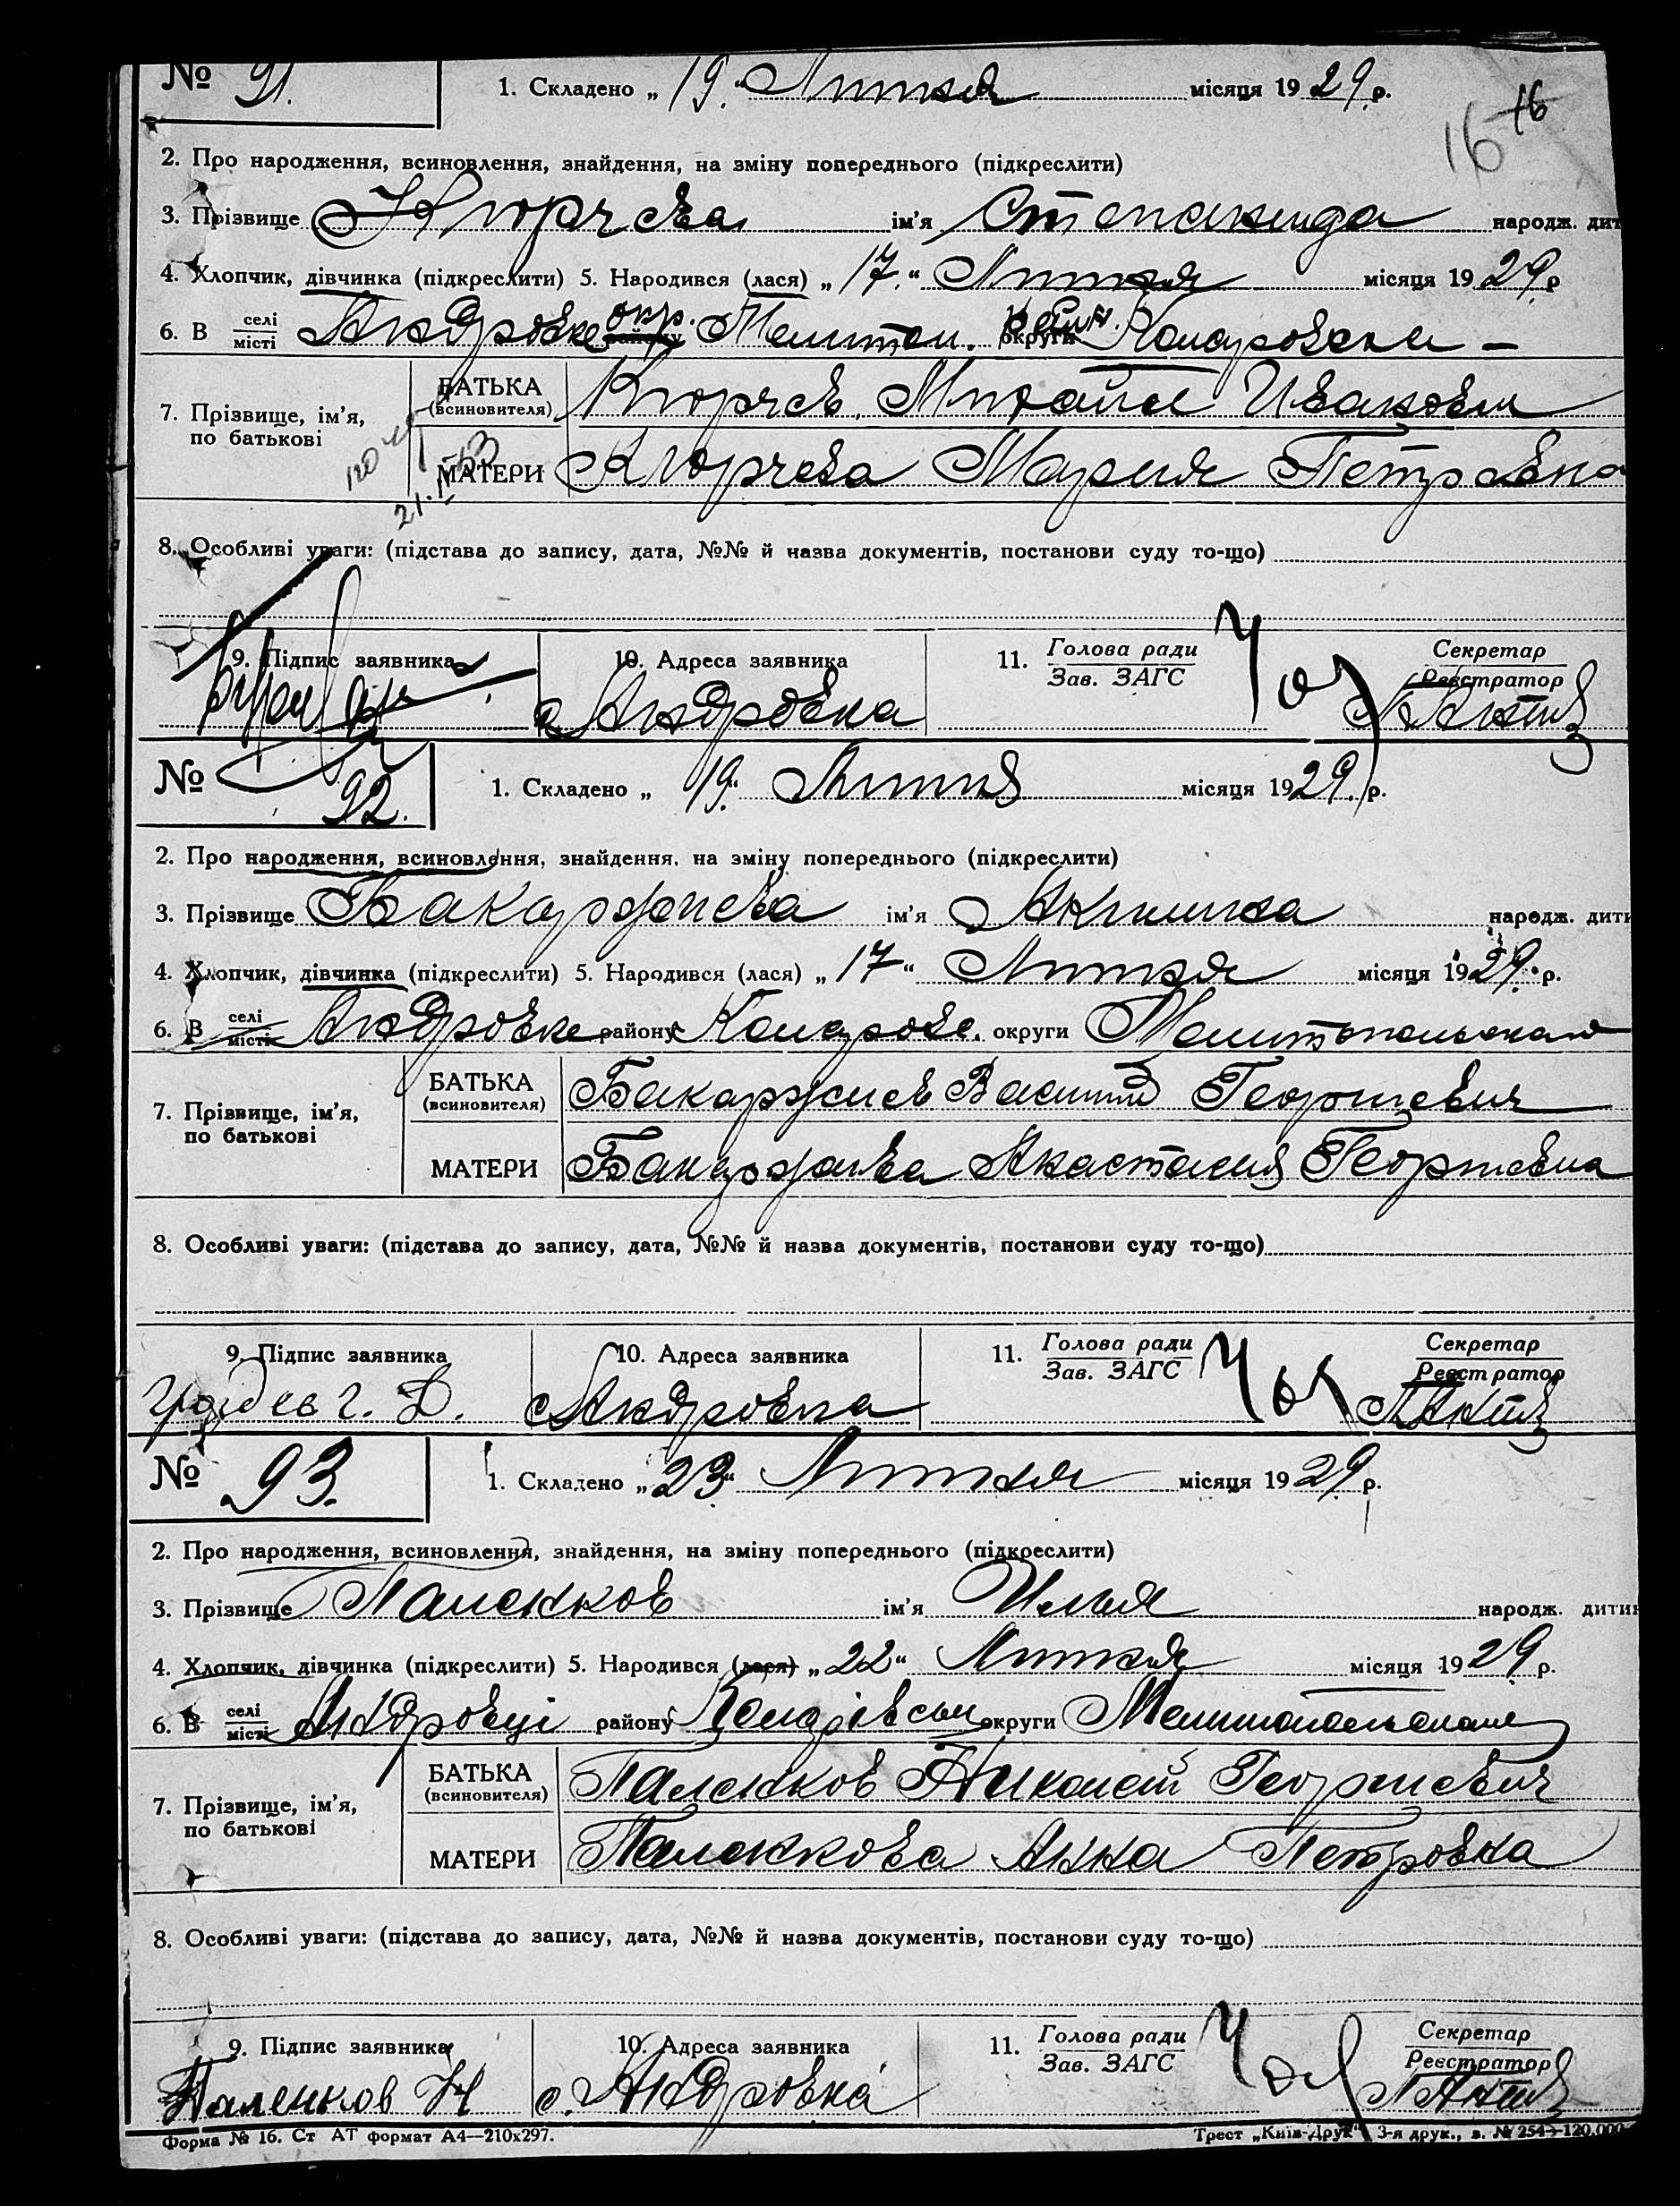 № 91. 1. Складено „19." Липня місяця 1929 р.
16 16
2. Про народження, всиновлення, знайдення, на зміну попереднього (підкреслити)
3. Прізвище Кюрчева ім'я Степанида народж. дит
4. Хлопчик, дівчинка (підкреслити) 5. Народився (лася) „17." Липня місяця 1929 р
6. В селі місті Андровке окр. Мелитоп. округи Коларовски
7. Прізвище, ім'я, по батькові
БАТЬКА (всиновителя) Кюрчев Михаил Иванович
МАТЕРИ Кюрчева Мария Петровна
8. Особливі уваги: (підстава до запису, дата, №№ й назва документів, постанови суду то-що)
9. Підпис заявника 10. Адреса заявника 11. Голова ради Зав. ЗАГС Секретар Реєстратор
с Андровка
№ 92. 1. Складено „19." Липня місяця 1929. р.
2. Про народження, всиновлення, знайдення, на зміну попереднього (підкреслити)
3. Прізвище Бакаржиева ім'я Акилина народж. дити
4. Хлопчик, дівчинка (підкреслити) 5. Народився (лася) „17" Липня місяця 1929. р.
6. В селі місті Андровке району Коларовс. округи
7. Прізвище, ім'я, по батькові
БАТЬКА (всиновителя) Бакаржиев Василий Георгиевич
МАТЕРИ Бакаржиева Анастасия Георгиевна
8. Особливі уваги: (підстава до запису, дата, №№ й назва документів, постанови суду то-що)
9. Підпис заявника 10. Адреса заявника 11. Голова ради Зав. ЗАГС Секретар Реєстратор
с Андровка
№ 93. 1. Складено „23" Липня місяця 1929 р.
2. Про народження, всиновлення, знайдення, на зміну попереднього (підкреслити)
3. Прізвище Паленков ім'я Илья народж. дитин
4. Хлопчик, дівчинка (підкреслити) 5. Народився (лася) „22" Липня місяця 1929 р.
6. В селі місті Андровці району округи
7. Прізвище, ім'я, по батькові
БАТЬКА (всиновителя) Паленков Николай Георгиевич
МАТЕРИ Паленкова Анна Петровна
8. Особливі уваги: (підстава до запису, дата, №№ й назва документів, постанови суду то-що)
9. Підпис заявника 10. Адреса заявника 11. Голова ради Зав. ЗАГС Секретар Реєстратор
Паленков Н с. Андровка
Форма № 16. Ст АТ формат А4—210х297. Трест „Київ-Друк" 3-я друк., з. № 254—120.000